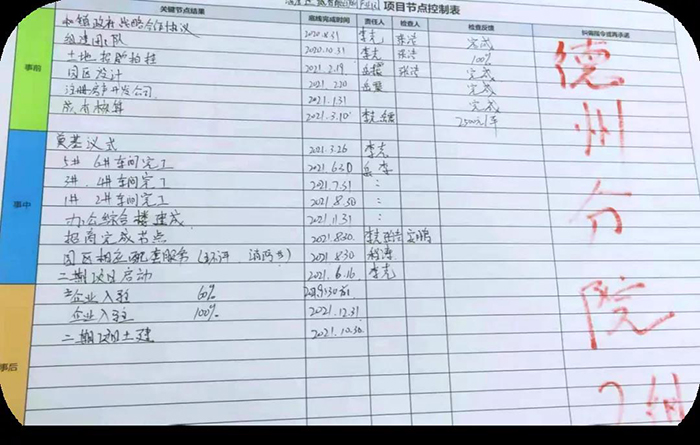 项目节点控制表
关键节点结果 底线完成时间 责任人 检查人 检查反馈
事前
和镇政府战略合作协议 2020.8.31 李克 张浩 完成
组建团队 2020.10.31 李克 张浩 100%
土地招拍挂 2021.2.19 张浩 完成
园区设计 2021.2.20 完成
注册房产开发公司 2021.1.31 完成
成本核算 2021.3.10 2500元/平
事中
奠基仪式 2021.3.26 李克
5# 6#车间完工 2021.6.30
3#、4#车间完工 2021.7.31 :
1# 2#车间完工 2021.8.30 :
办公综合楼建成 2021.11.31 :
招商完成节点 2021.8.30
园区相应配套服务(环评 消防等) 2021.8.30
二期项目启动 2021.6.16 李克
企业入驻 60%
企业入驻 100% 2021.12.31
二期项目土建 2021.10.30
事后
德
州
分
院